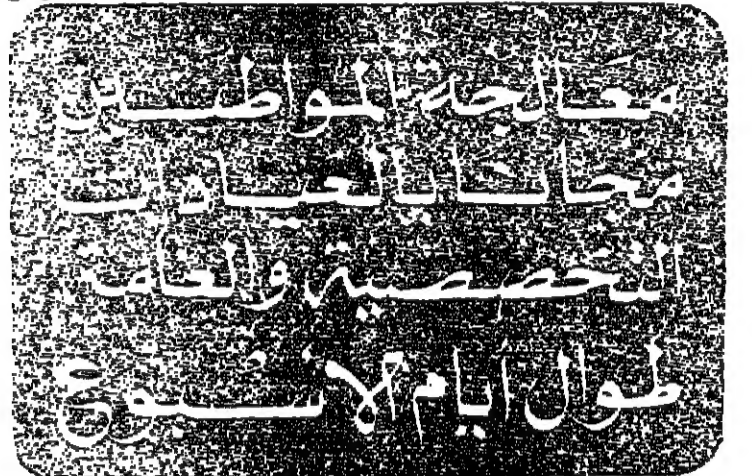 معالجة المواطنين
مجانا بالعيادات
التخصصية والعامة
طوال أيام الأسبوع